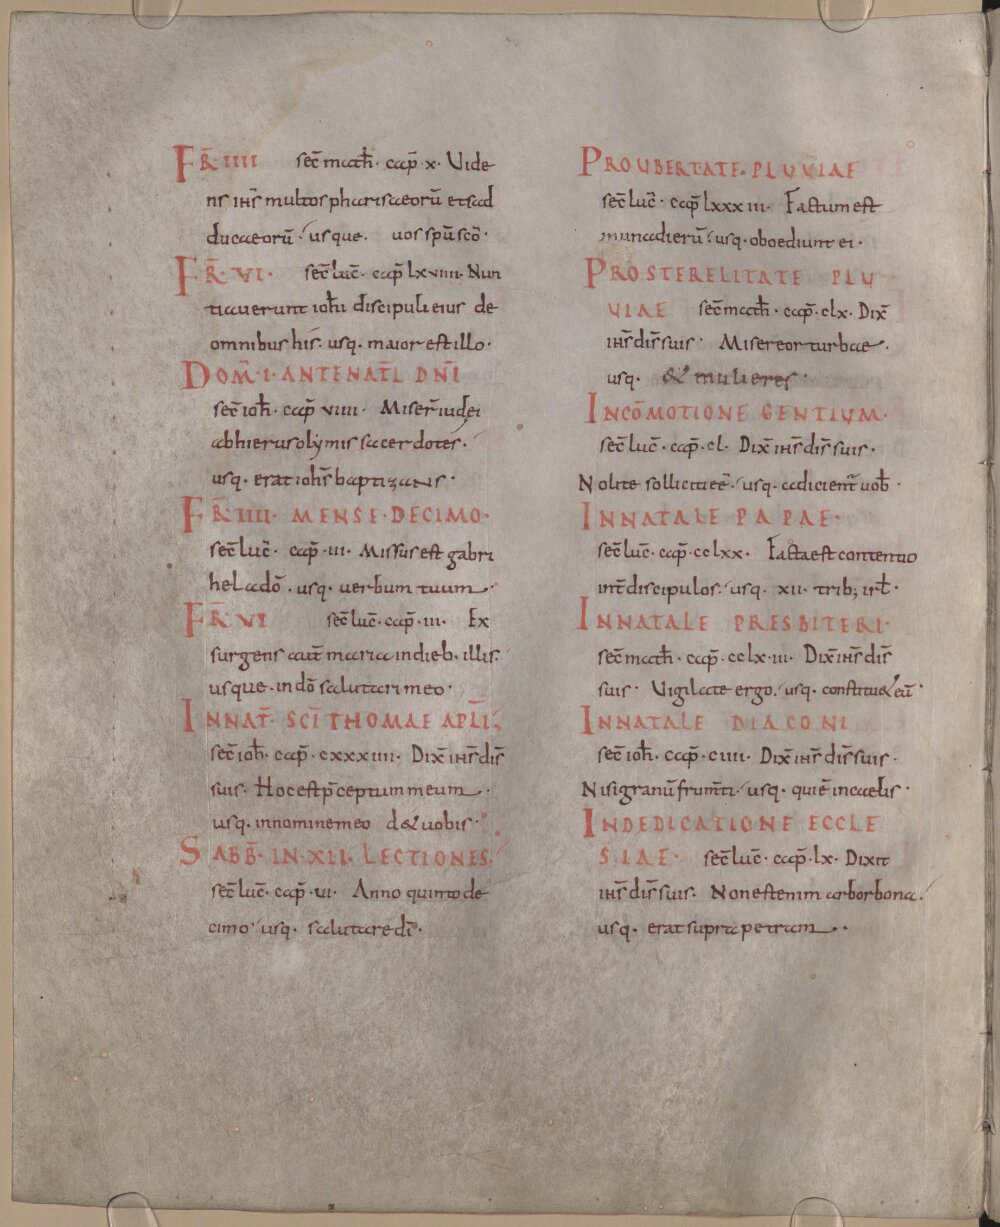 FR̄ IIII secͫ math̄· cap̄· x· Vide
ns ih̄s multos pharisaeorū et sad
ducaeorū· usque· uos sp̄u scō·
FR̄· VI· sec̄ luc̄· cap̄ lxviiii· Nun
tiauerunt ioh̄i discipuli eius de
omnibus his· usq· maior est illo·
DOM̄· I· ANTE NAT̄L DN̄I
sec̄ ioh̄· cap̄ viiii· Miser̄ iudei
ab hierusolymis sacerdotes·
usq· erat ioh̄s baptizans·
FR̄ IIII· MENSE· DECIMO·
sec̄ luc̄· cap̄· iii· Missus est gabri
hel ad ō· usq· uerbum tuum·
FR̄ VI sec̄ luc̄· cap̄· iii· Ex
surgens aut̄ maria in dieb· illis·
usque· in dō salutari meo·
IN NAT̄· SCĪ THOMAE APL̄I·
sec̄ ioh̄· cap̄· cxxxiiii· Dix̄ ih̄s dis̄
suis· Hoc est p̄ceptum meum·
usq· in nomine meo d&uobis·
SABB̄· IN· XII· LECTIONES·
sec̄ luc̄· cap̄· vi· Anno quinto de
cimo· usq· salutare dī·
PRO UBERTATE· PLUVIAE
sec̄ luc̄· cap̄ lxxxiii· Factum est
in una dierū· usq· oboediunt ei·
PRO STERELITATE PLU
VIAE sec̄ math̄· cap̄· clx· Dix̄
ih̄s dis̄ suis· Misereor turbae·
usq· & mulieres·
IN COM̄OTIONE GENTIUM·
sec̄ luc̄· cap̄· cl· Dix̄ ih̄s dis̄ suis·
Nolite solliciti eē· usq· adicient̄ uob̄·
IN NATALE PAPAE·
sec̄ luc̄· cap̄· cclxx· Facta est contentio
int̄ discipulos· usq· xii· trib; isrl̄·
IN NATALE PRESBITERI·
sec̄ math̄· cap̄· cclxiii· Dix̄ ih̄s dis̄
suis· Vigilate ergo· usq· constitu& eū·
IN NATALE DIACONI
sec̄ ioh̄· cap̄· ciiii· Dix̄ ih̄s dis̄ suis·
Nisi granū frum̄ti· usq· qui ē in caelis·
IN DEDICATIONE ECCLE
SIAE· sec̄ luc̄· cap̄· lx· Dixit
ih̄s dis̄ suis· Non est enim arbor bona·
usq· erat supra petram·